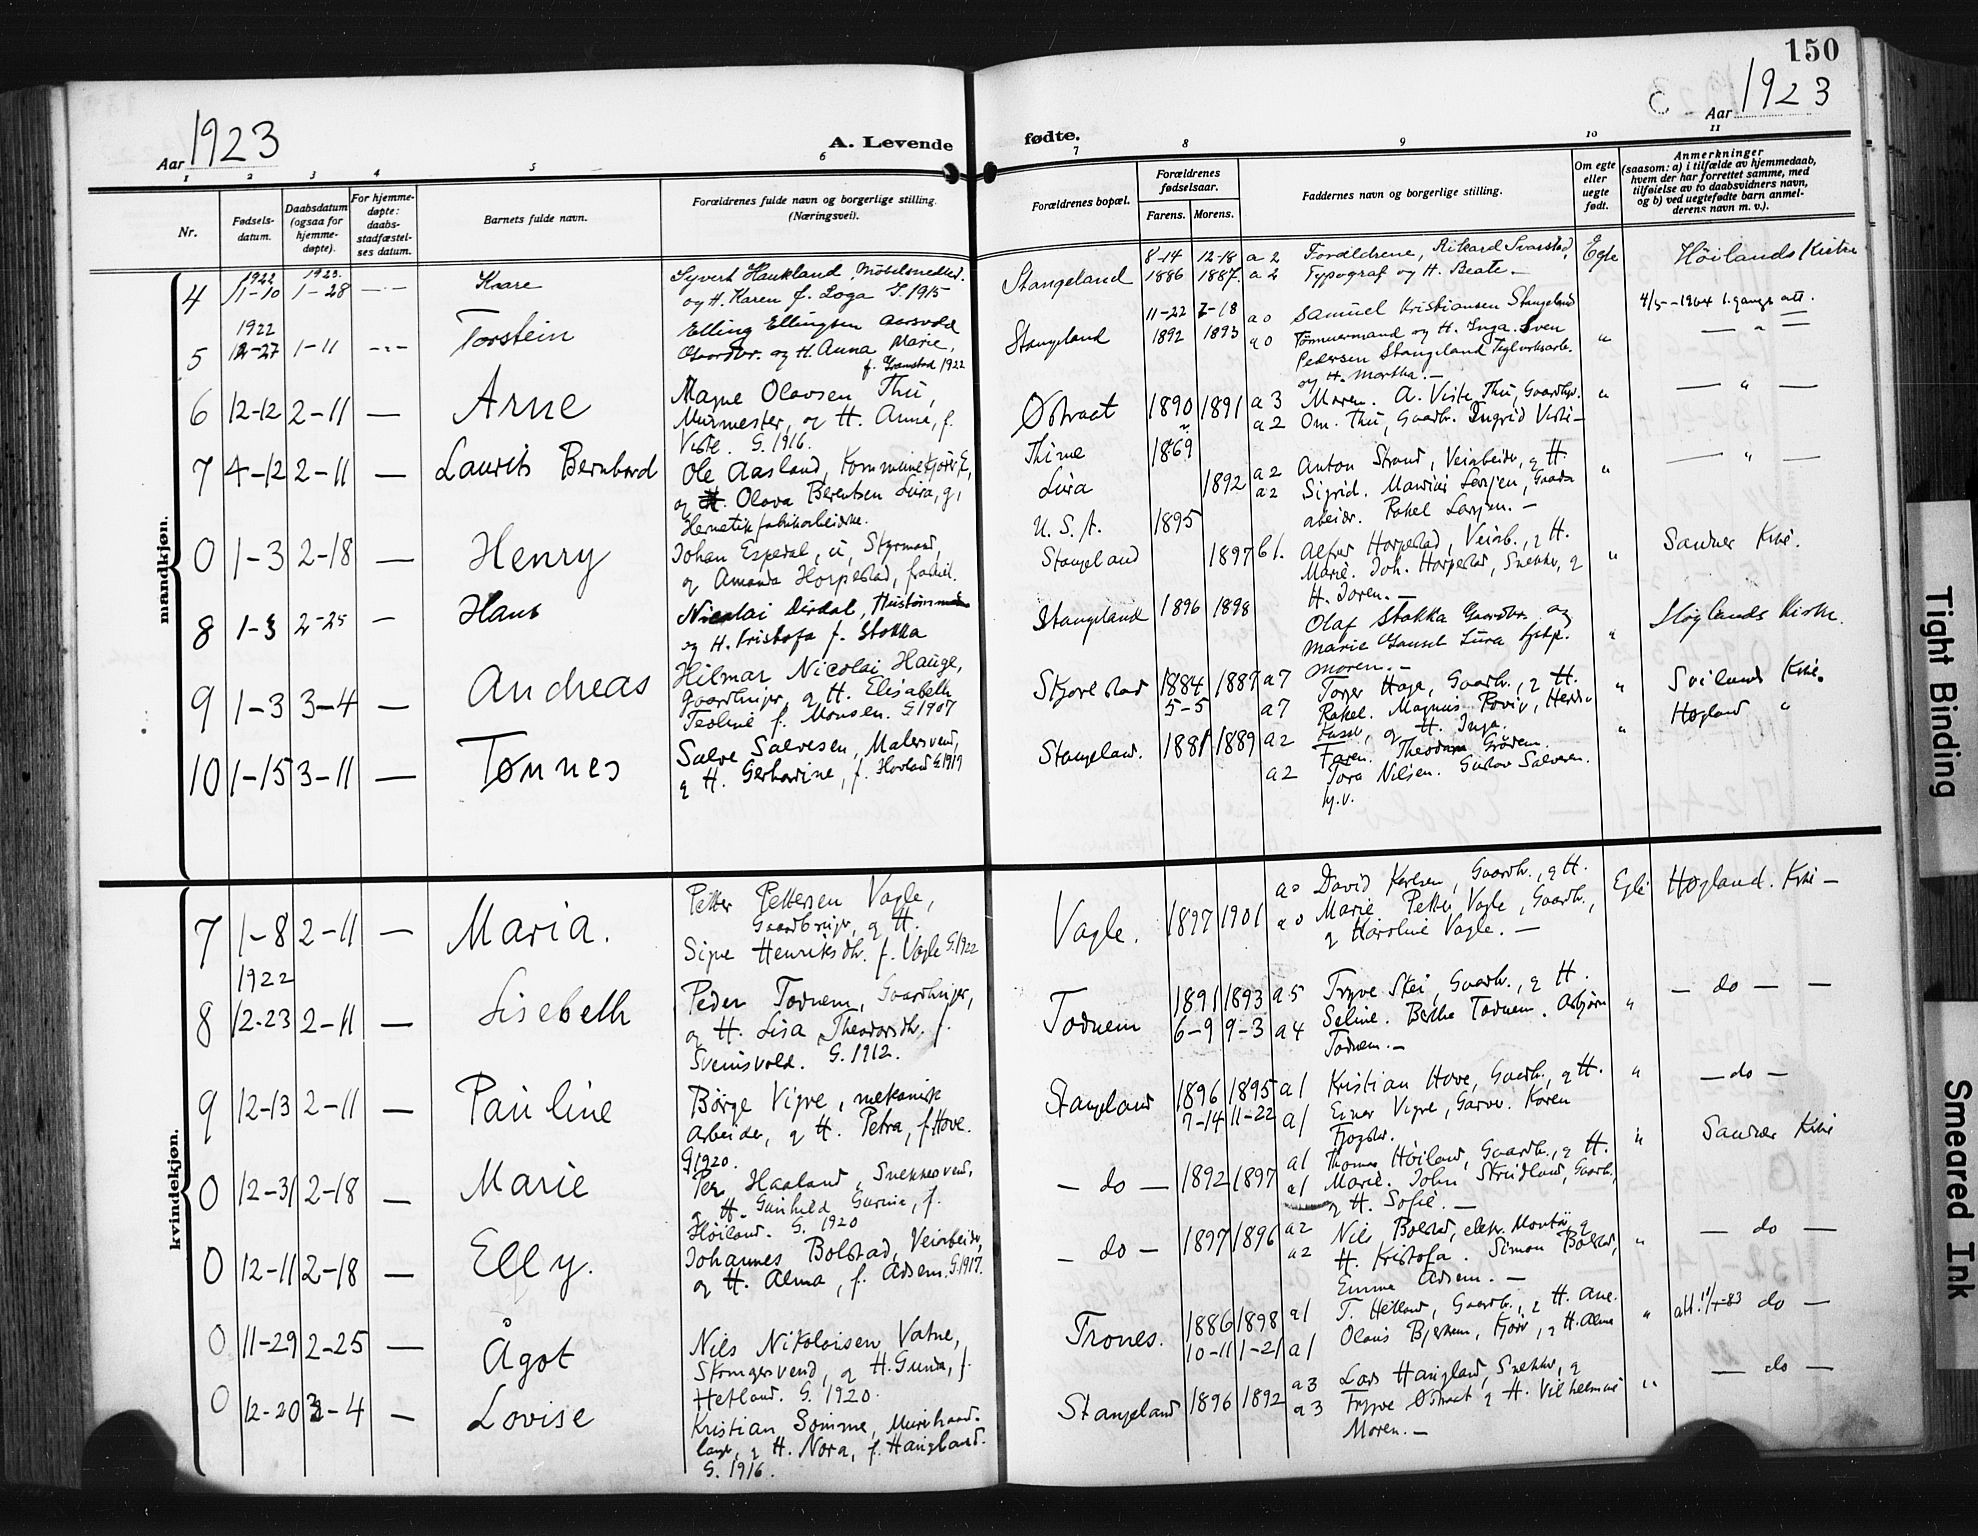 150
Aar 1923
A. Levende
fødte.
Aar 1923
1 2 3 4 5 6 7 8 9 10 11
Nr.
Fødsels-
datum.
Daabsdatum
(ogsaa for
hjemme-
døpte).
For hjemme-
døpte:
daabs-
stadfæstel-
ses datum.
Barnets fulde navn.
Forældrenes fulde navn og borgerlige stilling.
(Næringsvei).
Forældrenes bopæl.
Forældrenes
fødselsaar.
Farens. Morens.
Faddernes navn og borgerlige stilling.
Om egte
eller
uegte
født.
Anmerkninger
(saasom: a) i tilfælde av hjemmedaab,
hvem der har forrettet samme, med
tilføielse av to daabsvidners navn,
og b) ved uegtefødte barn anmel-
derens navn m. v.).
mandkjøn.
4 1922 11-10 1923. 1-28 — Kaare
Syvert Haukland, Møbelsnedker.
og H. Karen f. Loga G. 1915
Stangeland
8-14 12-18
1886 1887.
a 2 Forældrene, Rikard Svarstad,
a 2 Typograf og H. Beate. —
Egte
Höilands Kirke
5 1922 12-27 1-11 — Torstein
Elling Ellingsen Aarsvold
Gaardbr. og H. Anna Marie,
f. Gramstad 1922
Stangeland
11-22
1892 1893
a 0 Samuel Kristiansen Stangeland
a 0 Tømmermand og H. Inga. Sven
Pedersen Stangeland Teglverksarb.
og H. Martha. —
"
4/5 - 1964 1. gangs att.
— " —
6 12-12 2-11 — Arne
Magne Olavsen Thu,
Murmester, og H. Anna, f.
Viste. G. 1916.
Østraat
1890 1891
a 3 Moren. A. Viste Thu, Gaardbr.
a 2 Om. Thu, Gaardbr. Ingrid Viste —
"
— " —
7 4-12 2-11 — Laurits Bernhard
Ole Aasland, Kommunekasserer E,
og Olava Berentsen Lura, g,
Hermetikfabrikarbeiderske.
Thime
Lura
1869
1892
a 2 Anton Strand, Veiarbeider, og H.
a 2 Sigrid. Marius Larsen, Gaards
arbeider. Rakel Larsen. —
"
— " —
0 1-3 2-18 — Henry
Johan Espedal, u, Styrmand,
og Amanda Horpestad, fraskil.
U. S. A.
Stangeland
1895
1897
b 1. Alfred Horpestad, Veiarb., og H.
Marie. Joh. Horpestad, Snekker, og
H. Joren. —
"
Sandnes Kirke.
8 1-3 2-25 — Hans
Nicolai Dirdal, Hustømmermand
og H. Kristofa f. Stokka
Stangeland
1896 1898
Olaf Stokka Gaardbr. og
Marie Gausel Lura
Moren. —
"
Høylands Kirke.
9 1-3 3-4 — Andreas
Hilmar Nicolai Hauge,
Gaardbruger, og H. Elisabeth
Teoline f. Monsen. G. 1907
Skjorestad
1884 1887
5-5
a 7 Torger Hage, Gaardb., og H.
a 7 Rakel. Magnus
og H. Inga.
"
Sviland Kirke.
10 1-15 3-11 — Tønnes
Salve Salvesen, Malersvend,
og H. Gerhardine, f. Hovland G. 1917
Stangeland.
1881 1889
a 2 Faren. Theodora Gröden.
a 2 Tora Nilsen. Gustav Salvesen.
"
Høyland "
kvindekjøn.
7 1-8 2-11 — Maria.
Petter Pettersen Vagle,
Gaardbruger, og H.
Signe Henriksdtr. f. Vagle G. 1922
Vagle.
1897 1901
a 0 David Karlsen, Gaardb., og H.
a 0 Marie. Petter Vagle, Gaardb.,
og Karoline Vagle. —
Egte
Høyland. Kirke —
8 1922 12-23 2-11 — Lisebeth
Peder Todnem, Gaardbruger,
og H. Lisa Theodorsdtr. f.
Sveinsvold. G. 1912.
Todnem
1891 1893
6-9 9-3
a 5 Trygve Skei, Gaardb., og H.
a 4 Seline. Berthe Todnem. Asbjørn
Todnem. —
"
— do —
9 12-13 2-11 — Pauline
Børge Vigre, mekanisk
Arbeider, og H. Petra, f. Hove.
G 1920.
Stangeland
1896 1895
7-14 11-22
a 1 Kristian Hove, Gaardb., og H.
a 1 Einar Vigre, Garver. Karen
"
— do —
0 12-31 2-18 — Marie
Per Haaland, Snekkersvend,
og H. Gunhild Gurine, f.
Høiland. G. 1920
— do —
1892 1897
a 1 Thomas Høiland, Gaardb., og H.
a 1 Marie. John Skeidland, Gaardb.,
og H. Sofie. —
"
Sandnes Kirke
0 12-11 2-18 — Elly.
Johannes Bolstad, Veiarbeider,
og H. Alma, f. Adsem. G. 1917.
— do —
1897 1896
a 2 Nils Bolstad, elektr. Montør, og
a 2 H. Kristofa. Simon Bolstad,
Emma Adsem. —
"
— do —
0 11-29 2-25 — Ågot
Nils Nikolaisen Vatne,
Skomagersvend, og H. Gunda, f.
Hetland. G. 1920.
Trones.
1886 1898
10-11 1-21
a 1 T. Hetland, Gaardb., og H. Ane.
a 1 Olaus Bjerkem, Kjør., og H. Alma
"
att. 11/1-83 do —
0 12-20 3-4 — Lovise
Kristian Sømme, Murerhand-
langer, og H. Nora, f. Haugland.
G. 1916.
Stangeland
1896 1892
a 3 Lars Haugland, Snekker, og
a 3 Trygve Østraat og H. Vilhelmine
Moren. —
"
— do —
Tight Binding
Smeared Ink